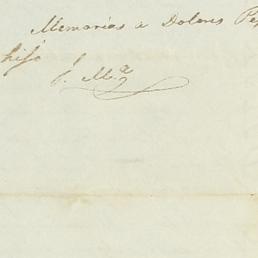 Memorias a Dolores
hijo
J. M.ª